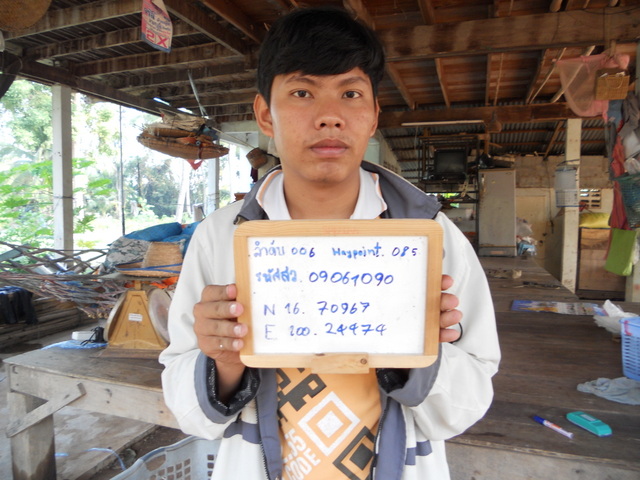 ลำดับ 006 Waypoint. 085
รหัสสว. 09061090
N 16. 70967
E 100. 24474